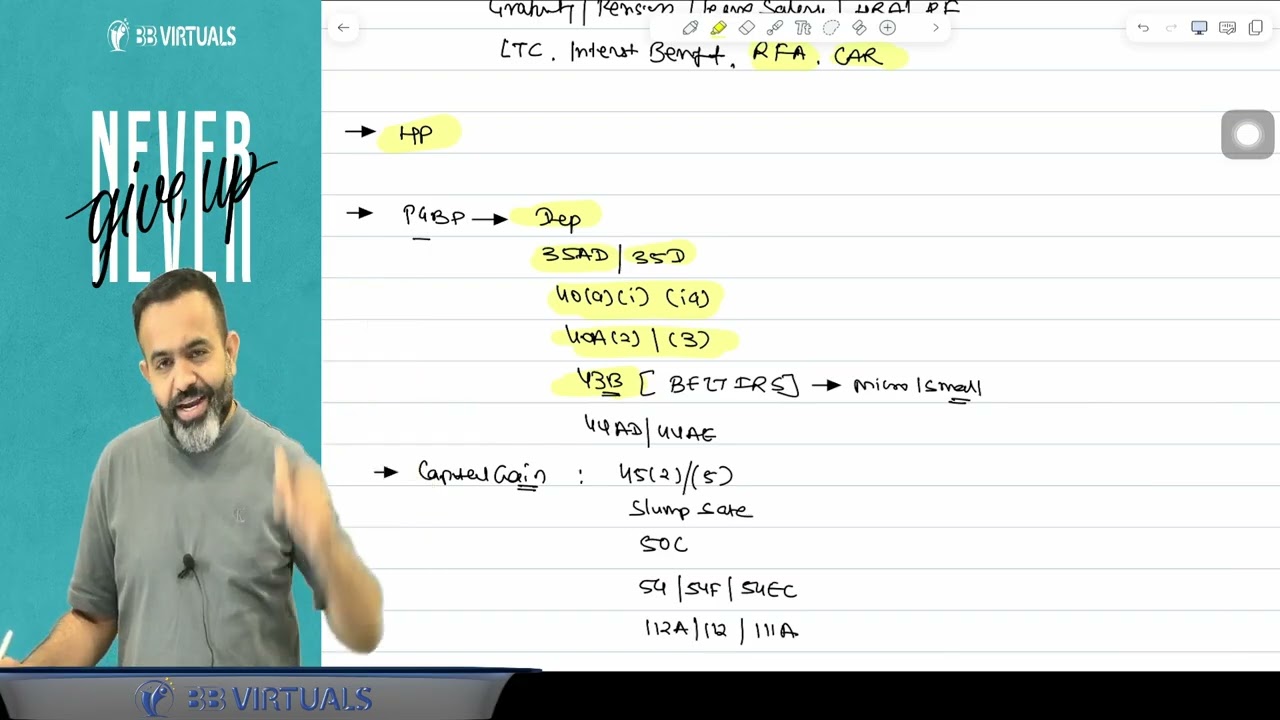 BB VIRTUALS
NEVER
give up
NEVER
Gratuity | Pension | Leave Salary | HRA | PF
LTC, Interest Benefit, RFA, CAR
→ HP
→ PGBP → Dep
35AD | 35D
40(a)(i) (ia)
40A(2) | (3)
43B [BFLTIRS] → Micro | Small
44AD | 44AE
→ Capital Gain : 45(2)/(5)
Slump Sale
50C
54 | 54F | 54EC
112A | 112 | 111A
BB VIRTUALS